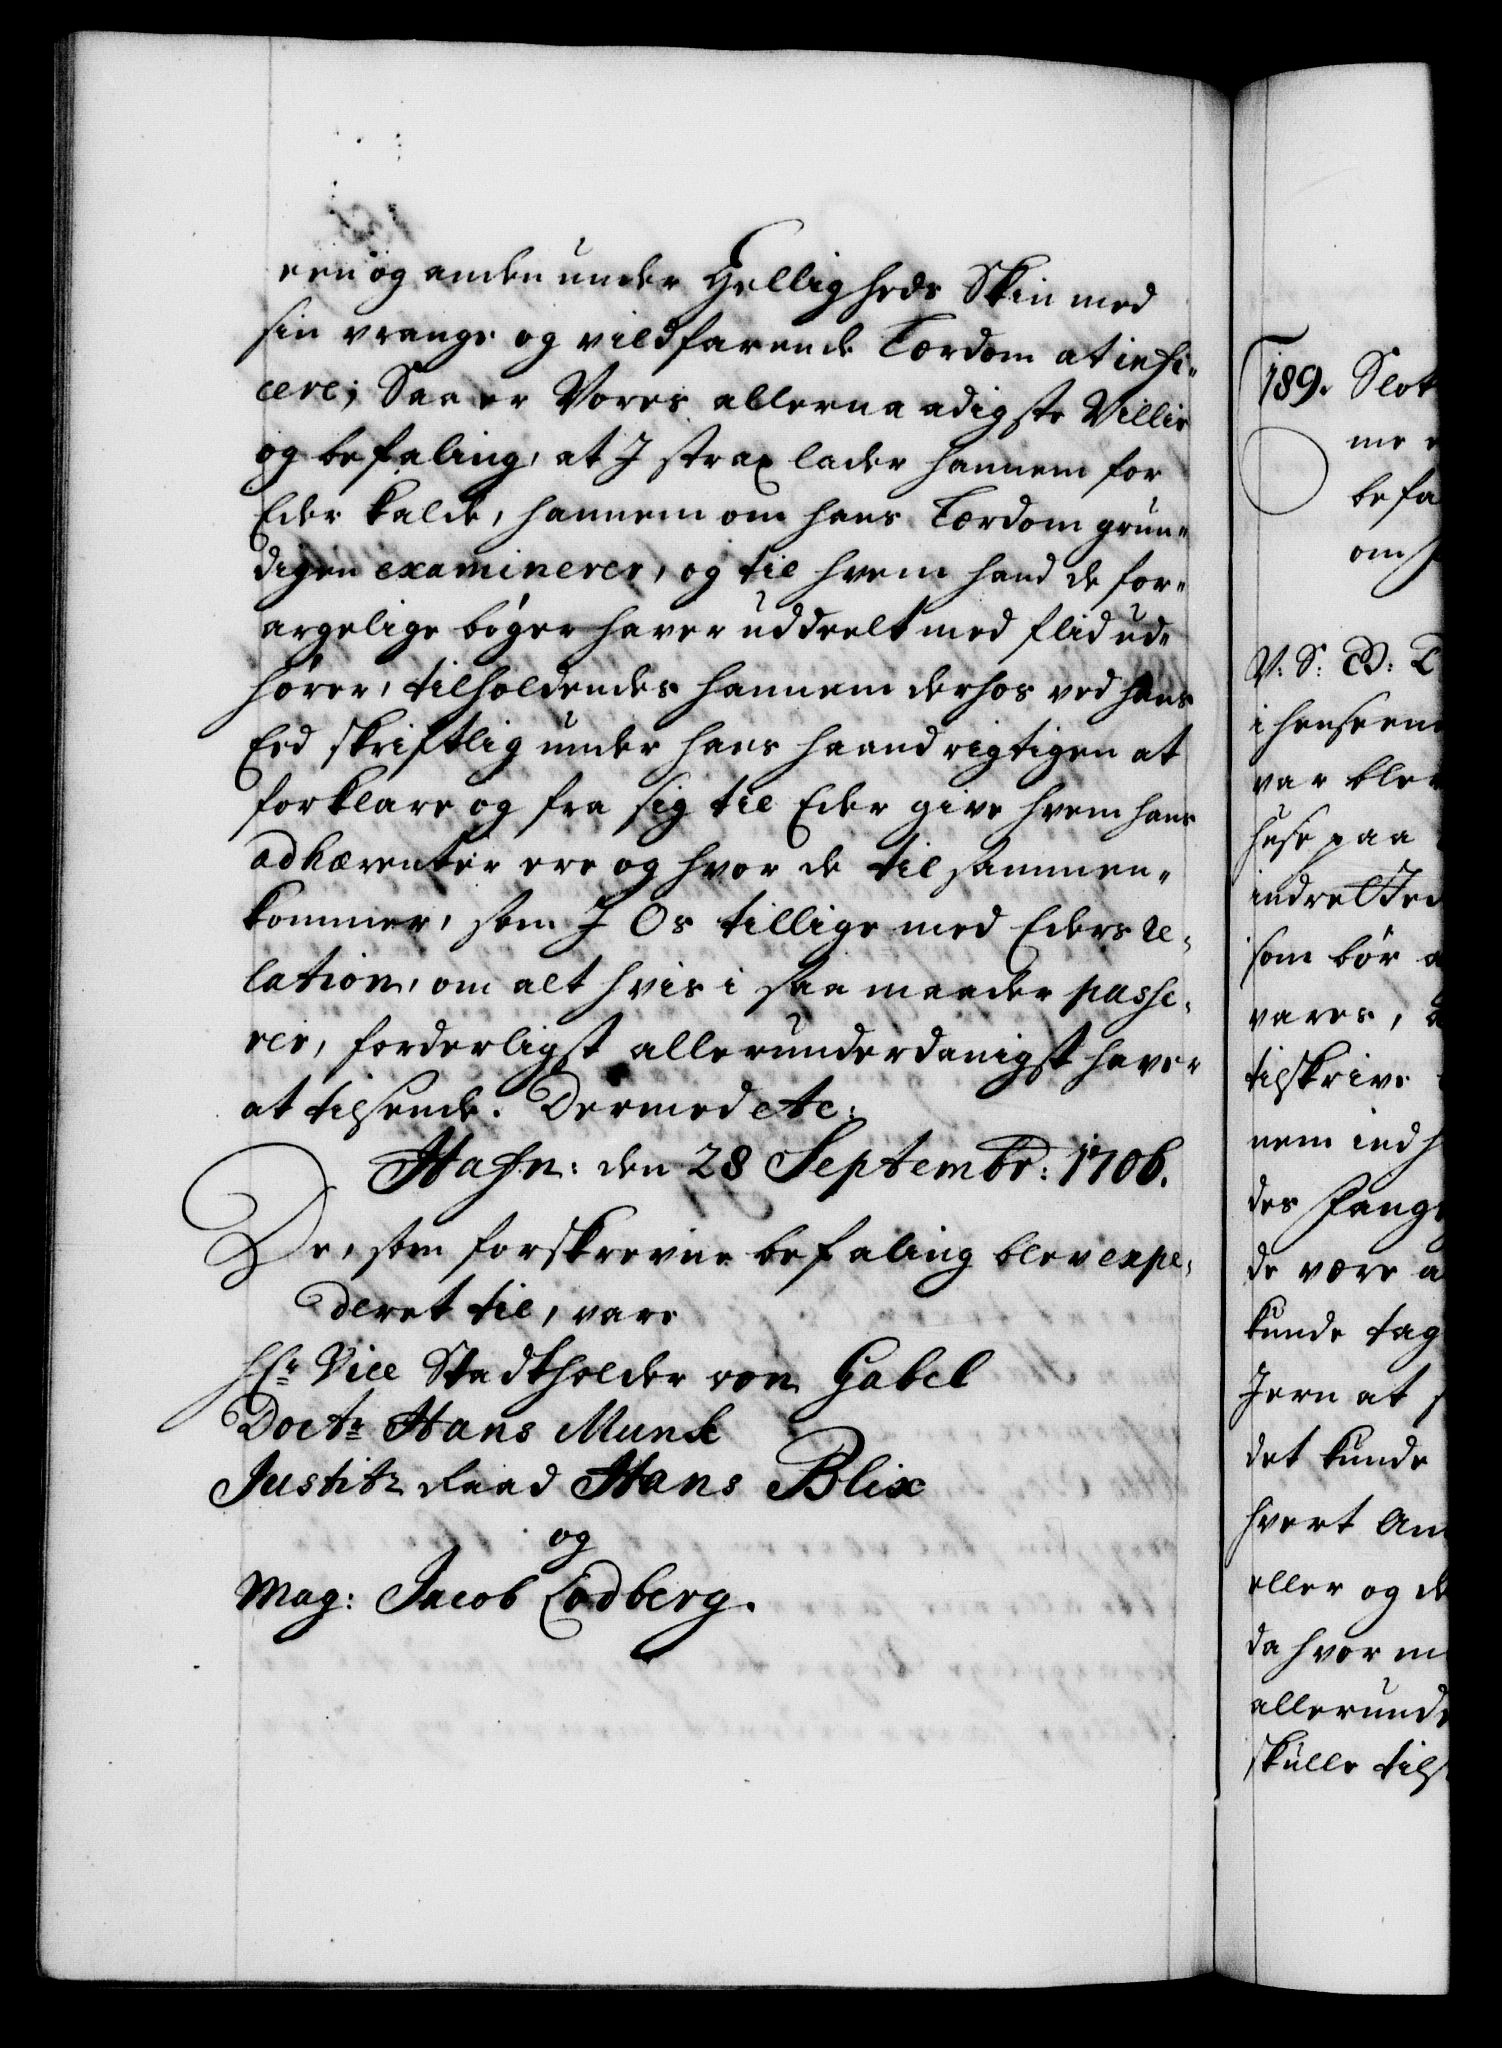 een og anden under Helligheds Skin med
sin vrange og vildfarende Lærdom at infi-
cere; Saa er Vores allernaadigste Villie
og befaling, at I strax lader hannem for
Eder kalde, hannem om hans Lærdom grun-
digen examinerer, og til hvem hand de for-
argelige bøger haver uddeelt med flid ud-
hører, tilholdendes hannem derhos ved hans
Eed skriftlig under hans haand rigtigen at
forklare og fra sig til Eder give hvem hans
adhærenter ere og hvor de til sammen-
kommer, som I Os tillige med Eders re-
lation, om alt hvis i saa maader passe-
rer, forderligst allerunderdanigst haver
at tilsende. Dermed etc:
Hafn: den 28 Septembr: 1706.
De, som forskrevne befaling blev expe-
deret til, vare
Hr Vice Stadtholder von Gabel
Doctr Hans Munk
Justitz Raad Hans Blix
og
Mag: Jacob Lodberg.
189. Slot
me
befa
om
V: S: W: T
i henseen
var blev
huse paa
indretted
som bør a
vares,
tilskrive
nem ind
des Fang
de være a
kunde tag
Jern at
det kunde
hvert Am
eller og de
da hvor m
allerunde
skulle tils